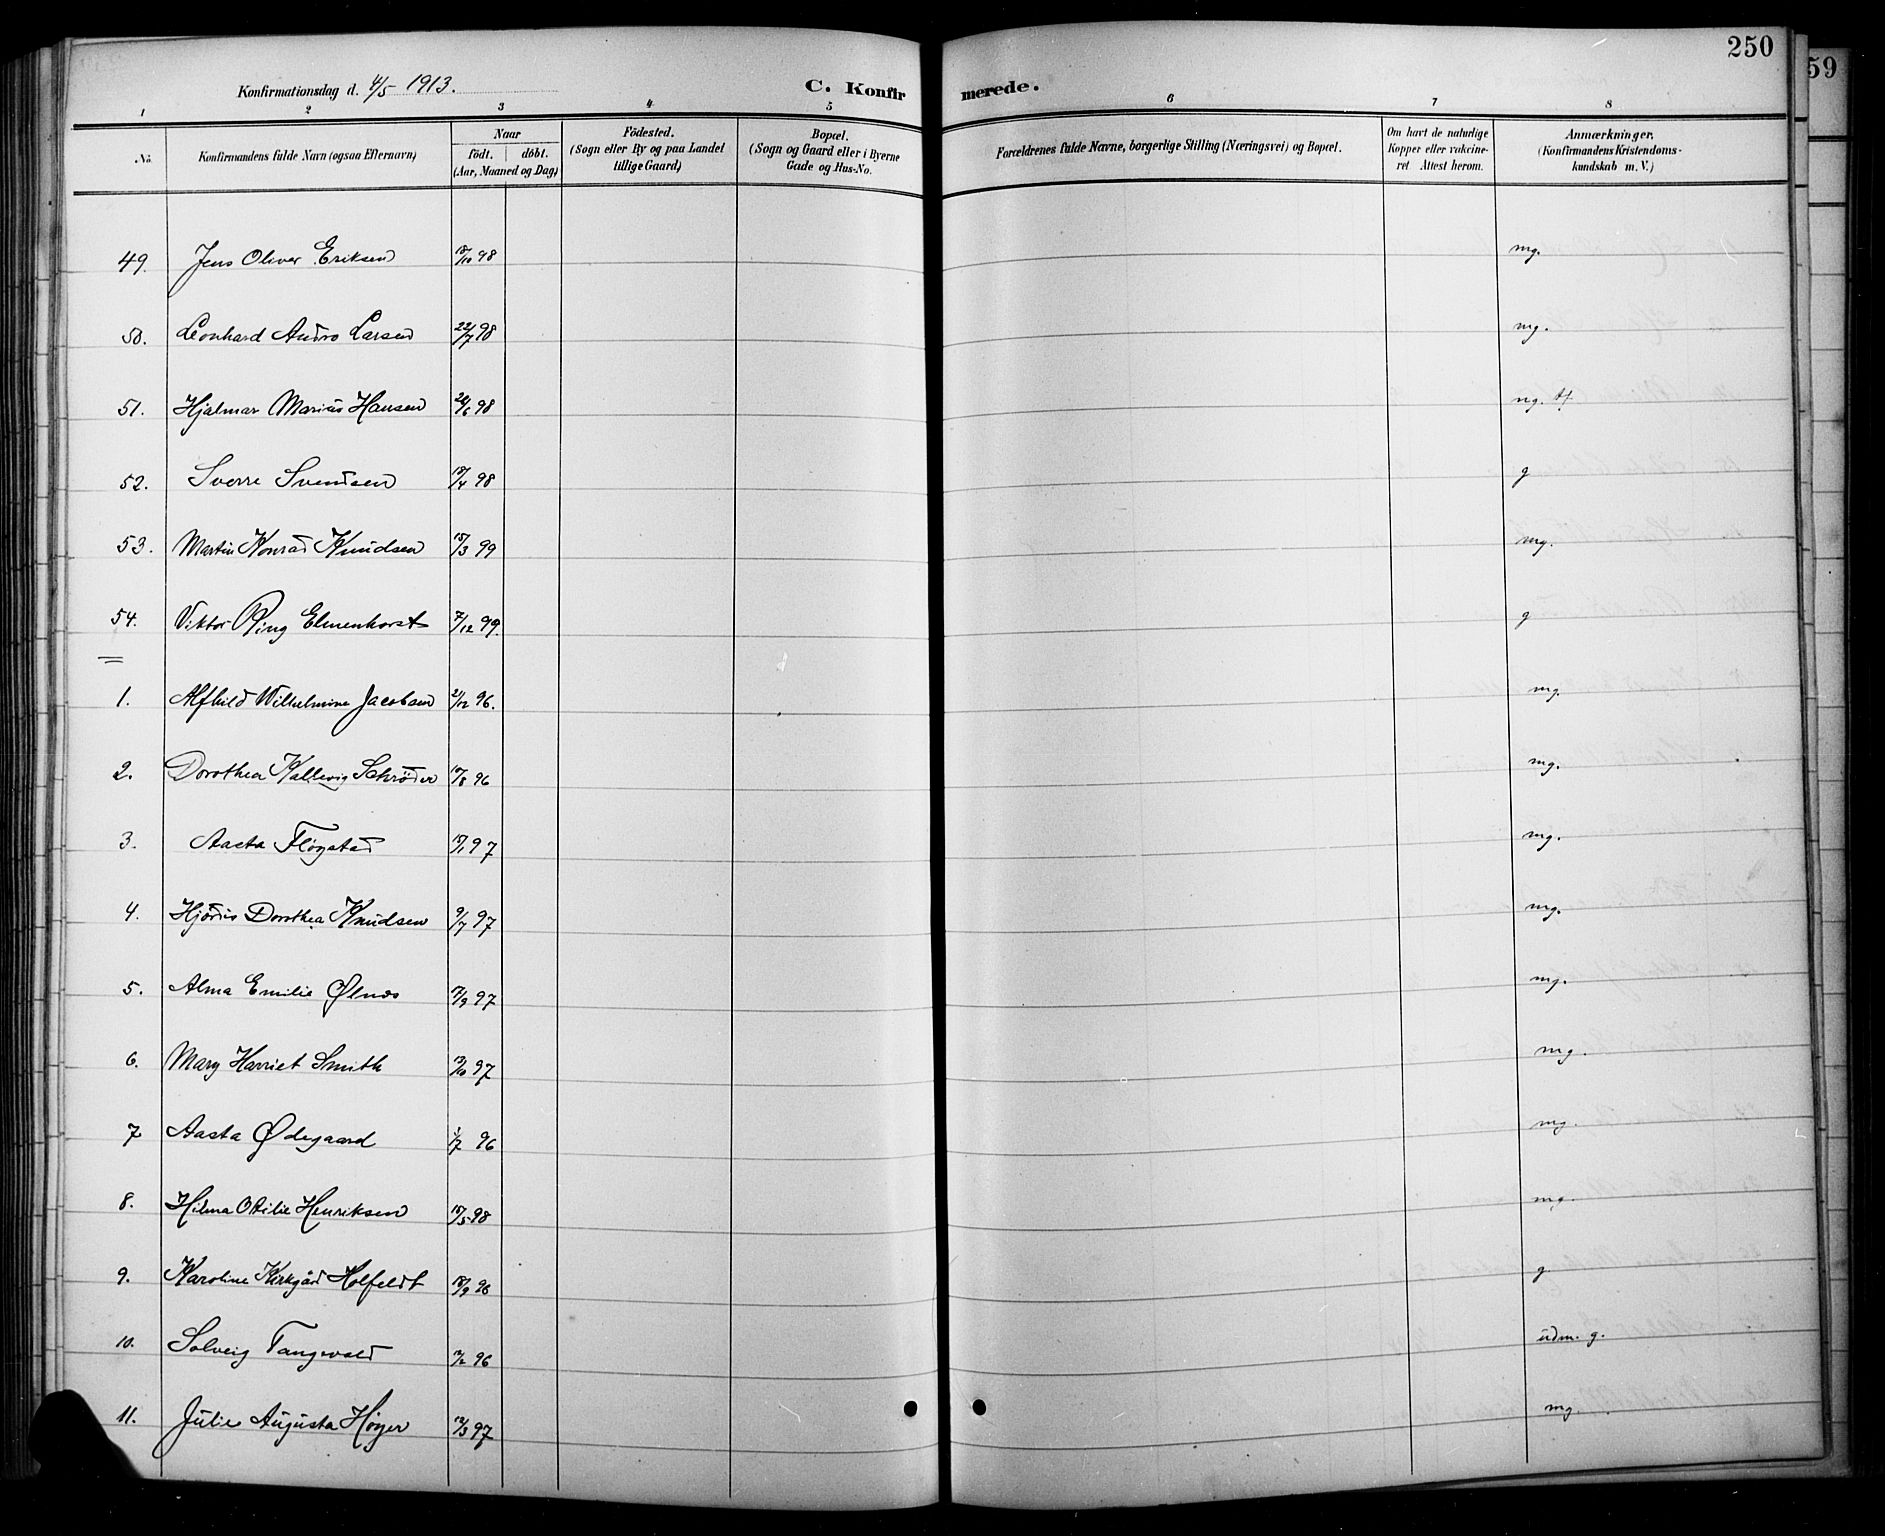 250
59
Konfirmationsdag d. 4/5 1913.
C. Konfirmerede.
1 2 3 4 5 6 7 8
No. Konfirmandens fulde Navn (ogsaa Efternavn) Naar født. døbt. (Aar, Maaned og Dag) Fødested. (Sogn eller By og paa Landet tillige Gaard) Bopæl. (Sogn og Gaard eller i Byerne Gade og Hus-No. Forældrenes fulde Navne, borgerlige Stilling (Næringsvei) og Bopæl. Om havt de naturlige Kopper eller vakcineret Attest herom. Anmærkninger. (Konfirmandens Kristendomskundskab m. V.)
49. Jens Oliver Eriksen 18/10 98 mg.
50. Leonhard Andro Larsen 22/7 98 mg.
51. Hjalmar Marius Hansen 24/6 98 ng. tf
52. Sverre Svendsen 18/4 98 g
53. Martin Konrad Knudsen 15/3 99 mg.
54. Viktor Ring Elmenhorst 7/12 99. g
1. Alfhild Wilhelmine Jacobsen 21/12 96. mg.
2. Dorothea Kallevig Schrøder 10/8 96 mg.
3. Aasta Fløgstad 15/1 97 mg.
4. Hjørdis Dorothea Knudsen 9/7 97 mg.
5. Alma Emilie Ølnes 17/9 97 mg.
6. Mary Harriet Smith 13/10 97 mg.
7 Aasta Ødegaard 1/7 96 mg.
8. Hilma Otilie Henriksen 15/5 98 mg.
9. Karoline Kirkgård Holfeldt 18/9 96 g
10. Solveig Tangwald 96 udm. g.
11. Julie Augusta Høyer 12/3 97 mg.